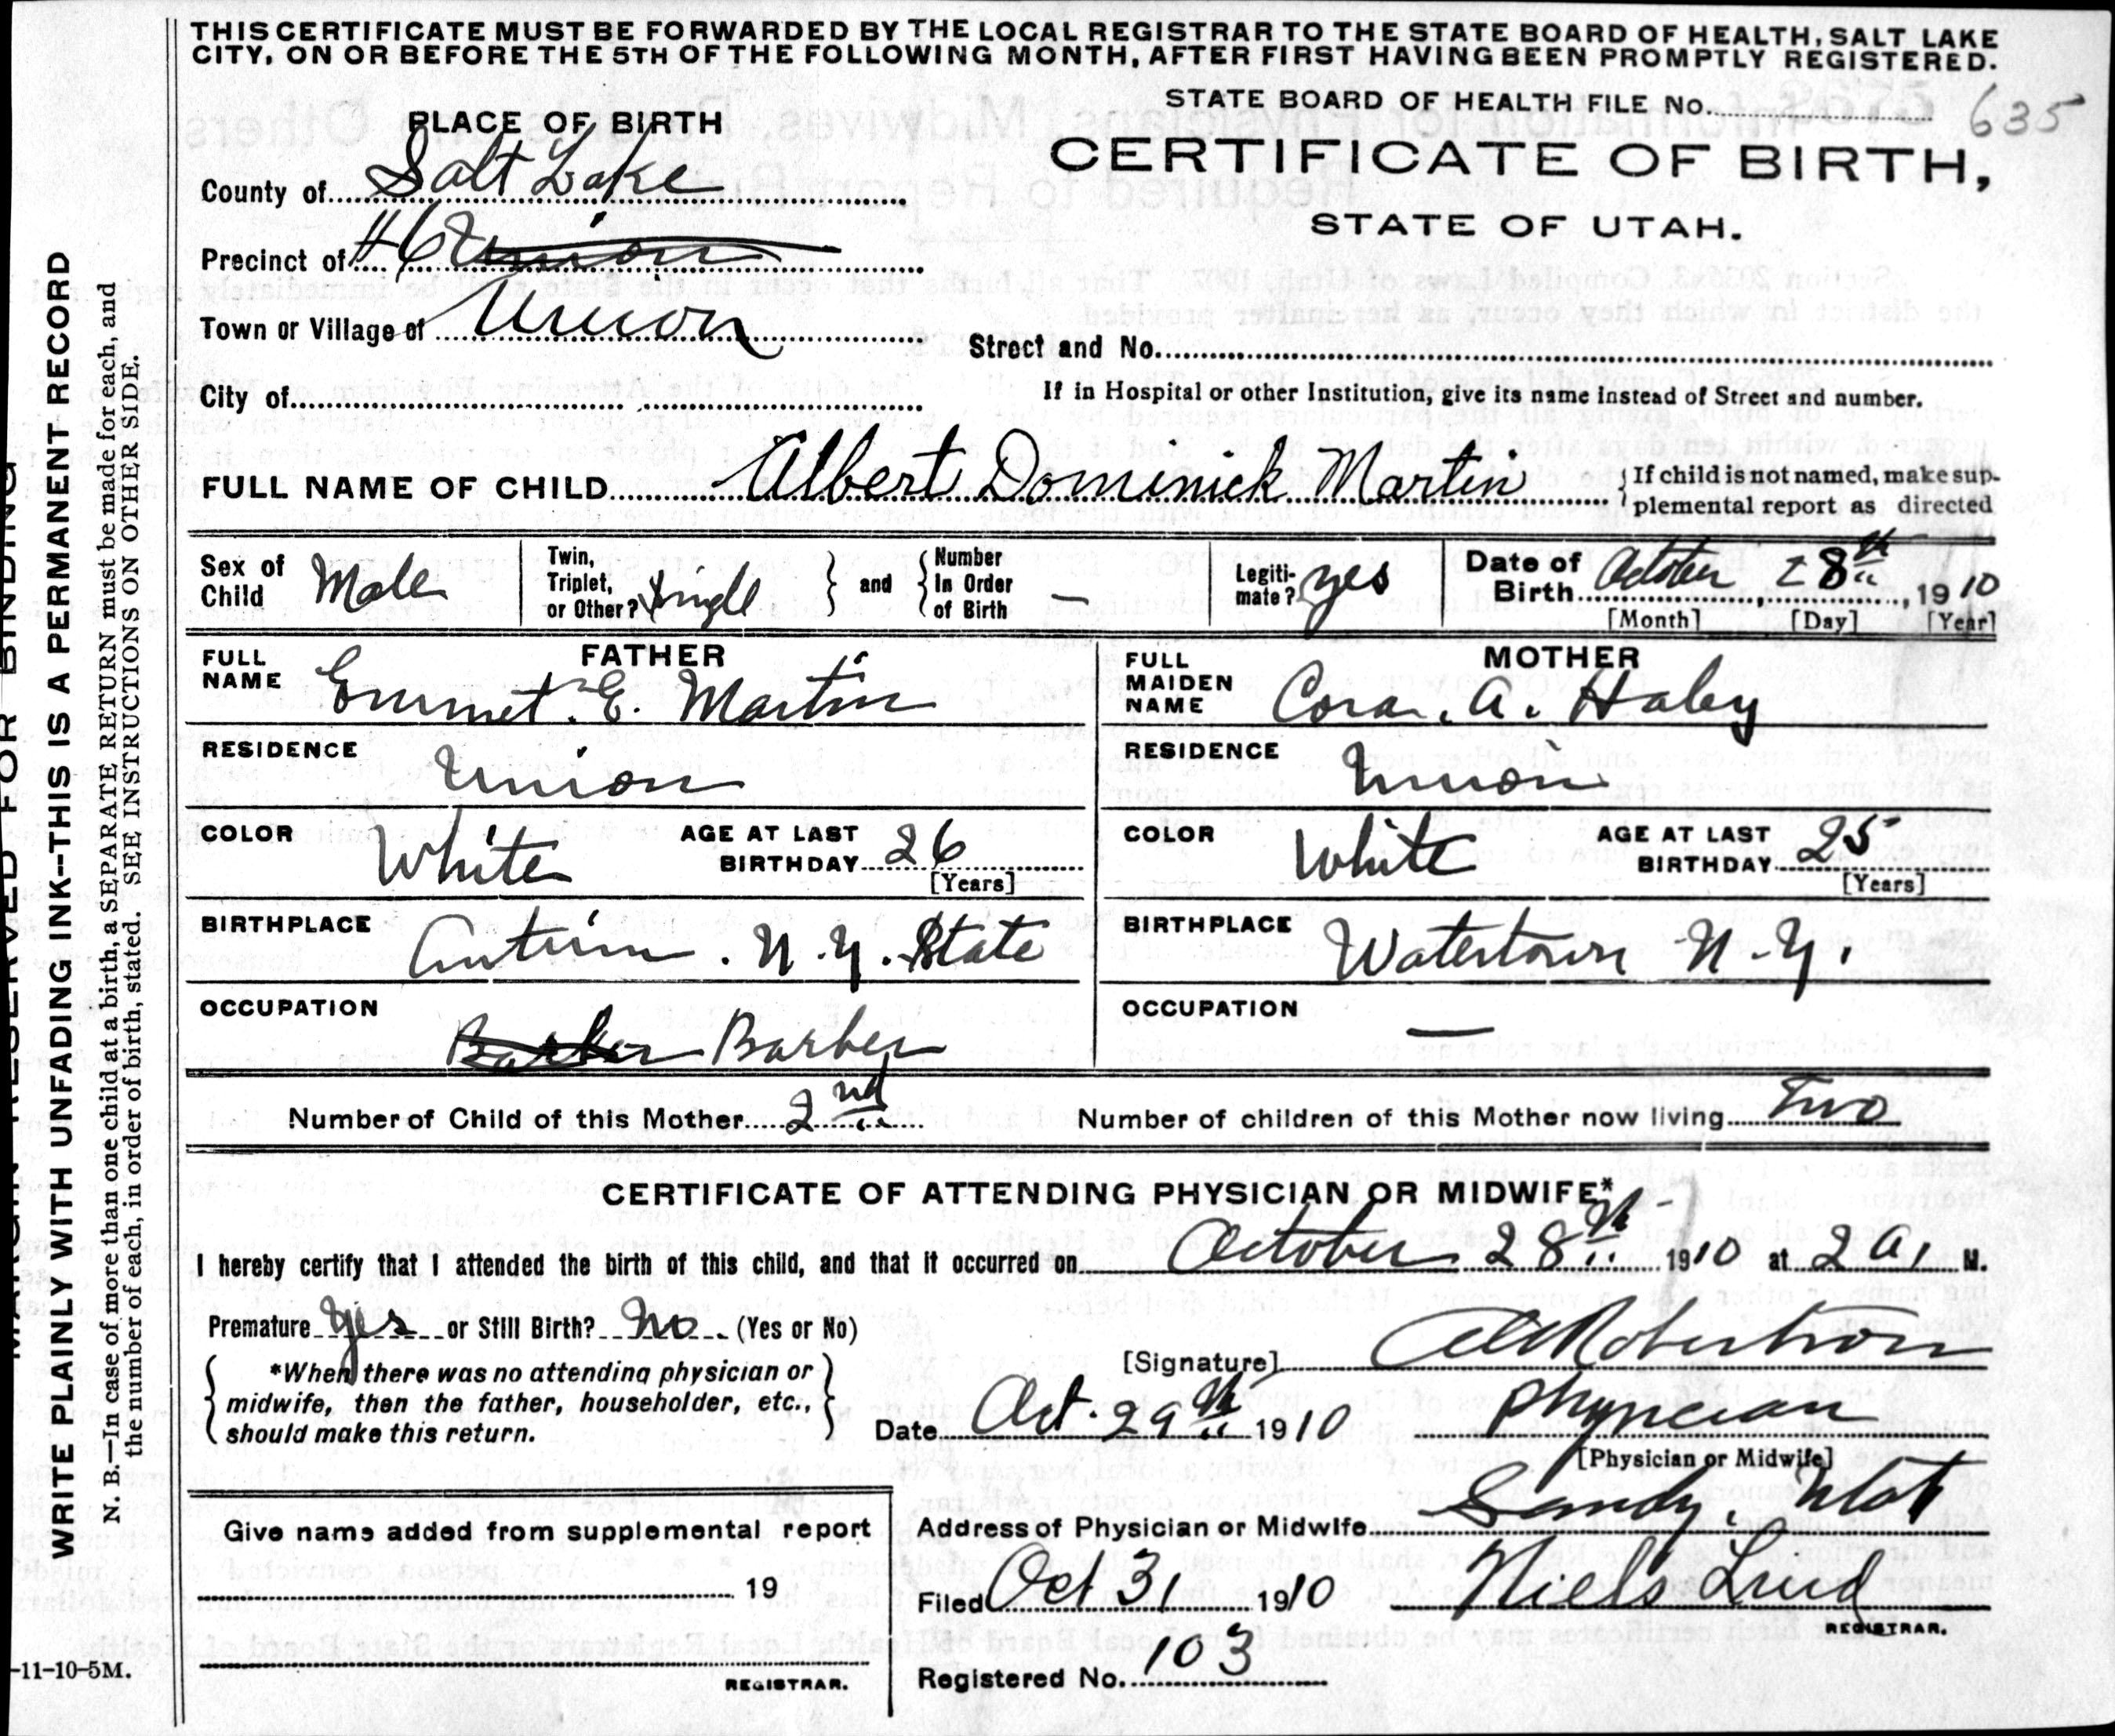 THIS CERTIFICATE MUST BE FORWARDED BY THE LOCAL REGISTRAR TO THE STATE BOARD OF HEALTH, SALT LAKE
CITY, ON OR BEFORE THE 5TH OF THE FOLLOWING MONTH, AFTER FIRST HAVING BEEN PROMPTLY REGISTERED.
STATE BOARD OF HEALTH FILE No. 635
CERTIFICATE OF BIRTH,
STATE OF UTAH.
PLACE OF BIRTH
County of Salt Lake
Precinct of #6 Union
Town or Village of Union
Street and No.
City of
If in Hospital or other Institution, give its name instead of Street and number.
FULL NAME OF CHILD Albert Dominick Martin
If child is not named, make sup-
plemental report as directed
Sex of Child Male
Twin, Triplet, or Other? Single
and
Number In Order of Birth —
Legiti-mate? yes
Date of Birth October 28th 1910
[Month] [Day] [Year]
FATHER
FULL NAME Emmet. E. Martin
RESIDENCE Union
COLOR White
AGE AT LAST BIRTHDAY 26
[Years]
BIRTHPLACE Antrim. N.Y. State
OCCUPATION Barber Barber
MOTHER
FULL MAIDEN NAME Cora. A. Haley
RESIDENCE Union
COLOR White
AGE AT LAST BIRTHDAY 25
[Years]
BIRTHPLACE Watertown N.Y.
OCCUPATION —
Number of Child of this Mother 2nd
Number of children of this Mother now living Two
CERTIFICATE OF ATTENDING PHYSICIAN OR MIDWIFE*
I hereby certify that I attended the birth of this child, and that it occurred on October 28th 1910 at 2 A. M.
Premature Yes or Still Birth? No (Yes or No)
*When there was no attending physician or
midwife, then the father, householder, etc.,
should make this return.
[Signature] Robertson
Date Oct. 29th 1910
Physician
[Physician or Midwife]
Address of Physician or Midwife Sandy. Utah
Give name added from supplemental report
19
REGISTRAR.
Filed Oct 31 1910
Niels Lind
REGISTRAR.
Registered No. 103
MARGIN RESERVED FOR BINDING
WRITE PLAINLY WITH UNFADING INK--THIS IS A PERMANENT RECORD
N. B.—In case of more than one child at a birth, a SEPARATE RETURN must be made for each, and
the number of each, in order of birth, stated. SEE INSTRUCTIONS ON OTHER SIDE.
-11-10-5M.